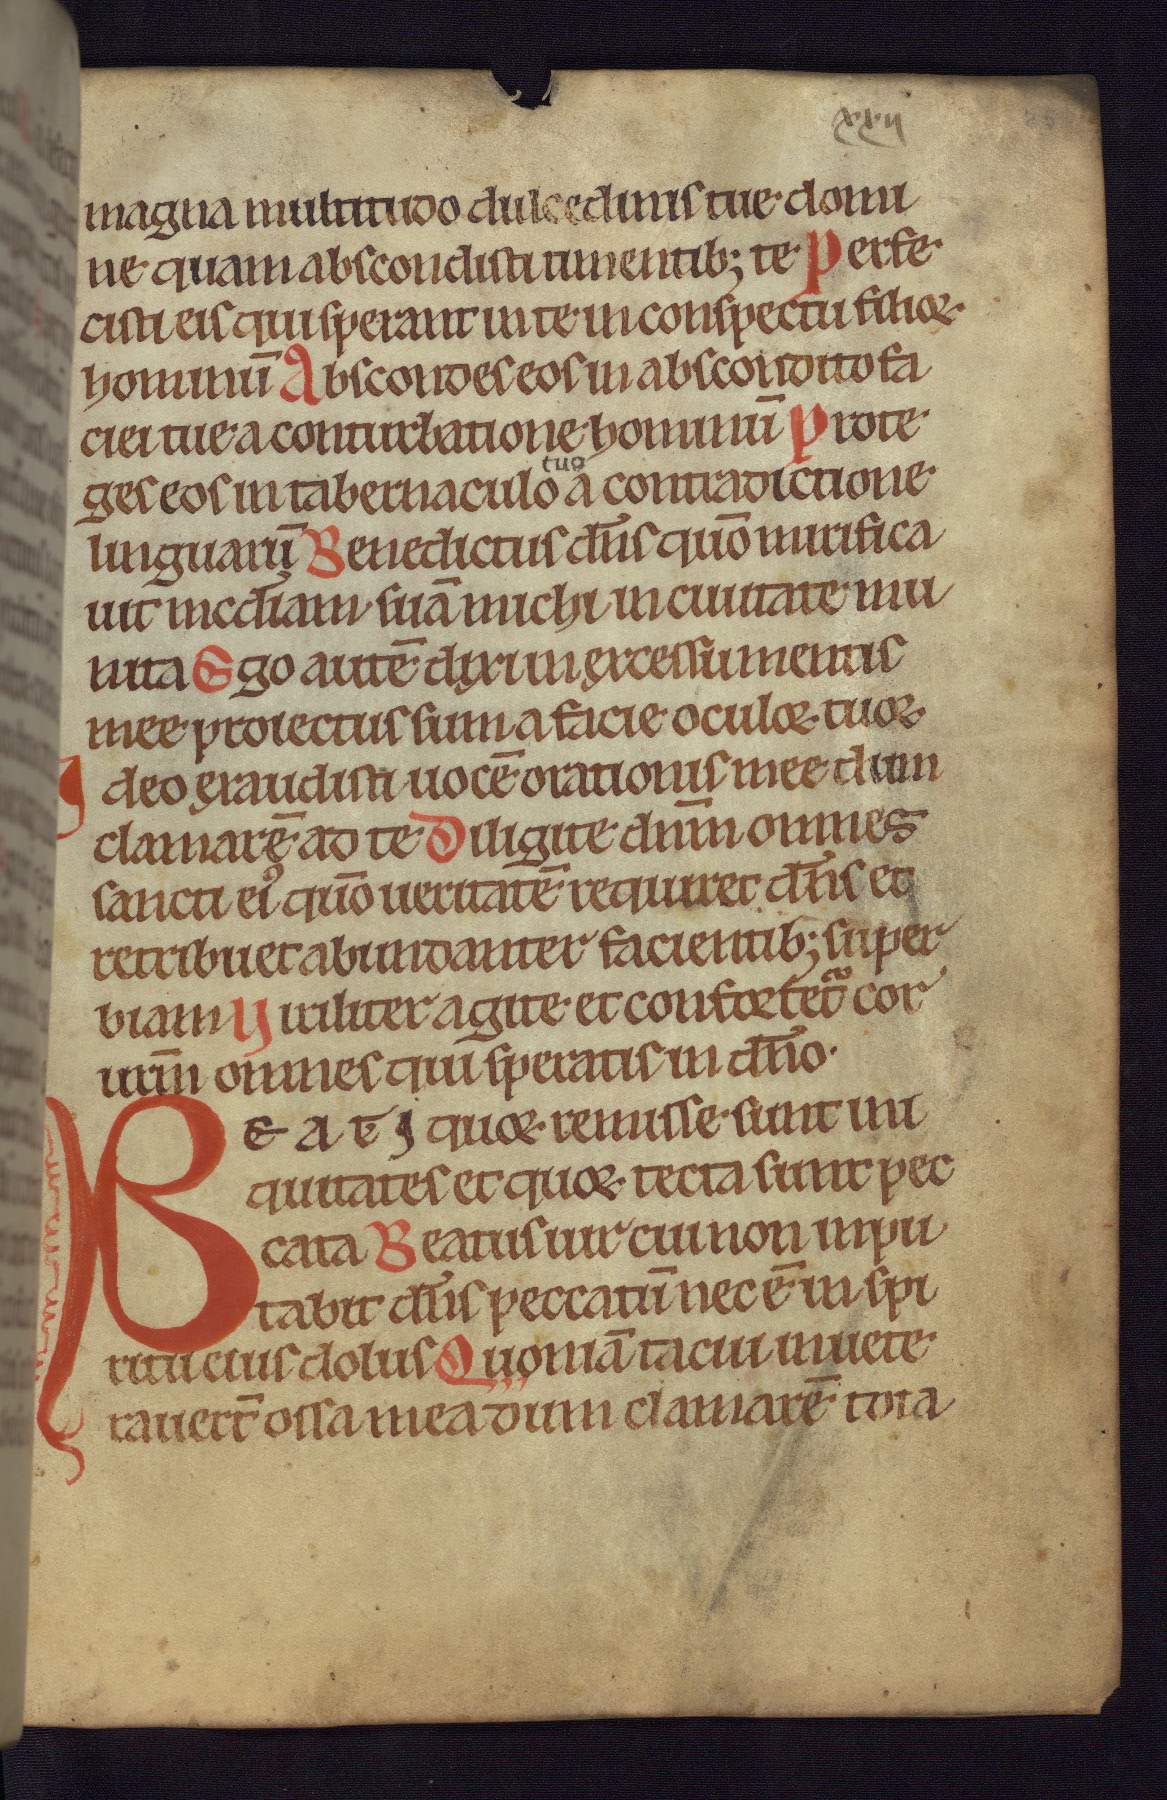 xxii
magna multitudo dulcedinis tue domi
ne quam abscondisti timentib; te Perfe
cisti eis qui sperant in te in conspectu filioꝝ
hominū Abscondes eos in abscondito fa
ciei tue a conturbatione hominū Prote
tuo
ges eos in tabernaculo a contradictione
linguarū Benedictus dn̄s quō mirifica
uit mc̄diam suā michi in ciuitate mu
nita Ego autē dixi in excessu mentis
mee proiectus sum a facie oculoꝝ tuoꝝ
Ideo exaudisti uocē orationis mee dum
clamarē ad te Diligite dn̄m omnes
sancti eiꝰ quō ueritatē requiret dn̄s et
retribuet abundanter facientib; super
biam Viriliter agite et confortet̄ᷓ cor
urm̄ omnes qui speratis in dn̄o.
BEATI quoꝝ remisse sunt ini
quitates et quoꝝ tecta sunt pec
cata Beatus uir cui non impu
tabit dn̄s peccatū nec ē in spi
ritu eius dolus Quoniā tacui inuete
rauert̄ ossa mea dum clamarē tota